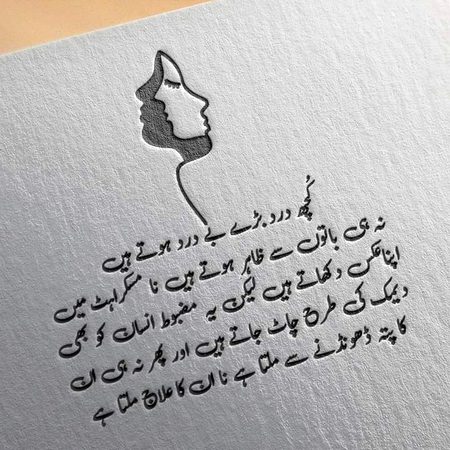 کُچھ درد بڑے بے درد ہوتے ہیں
نہ ہی باتوں سے ظاہر ہوتے ہیں نا مسکراہٹ میں
اپنا عکس دکھاتے ہیں لیکن یہ مضبوط انسان کو بھی
دیمک کی طرح چاٹ جاتے ہیں اور پھر نہ ہی ان
کا پتہ ڈھونڈنے سے ملتا ہے نا ان کا علاج ملتا ہے